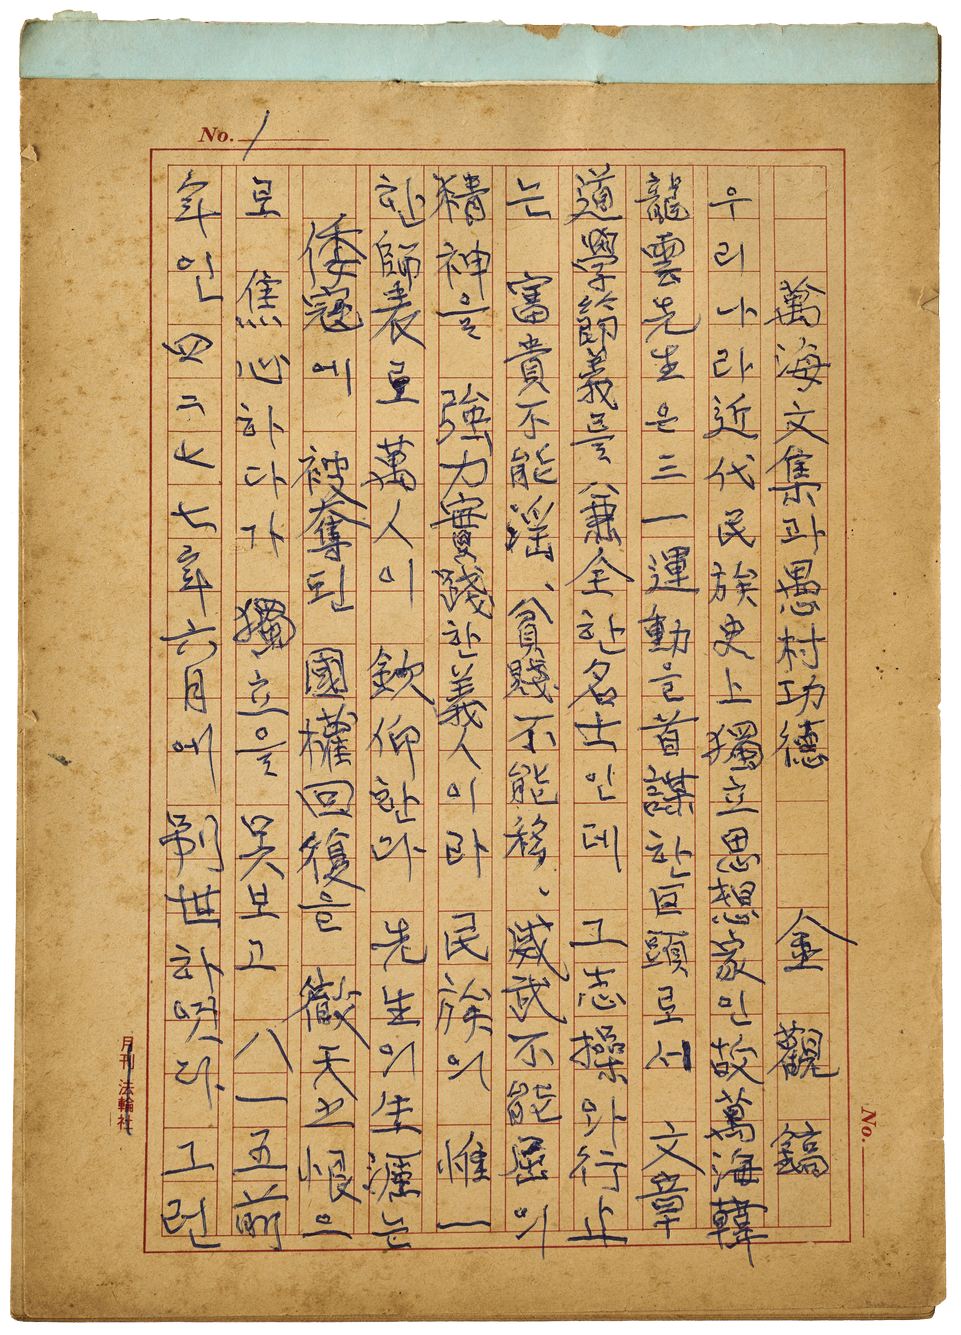 No. 1
萬海文集과 愚村功德 金觀鎬
우리나라 近代民族史上 獨立思想家인 故 萬海 韓
龍雲先生은 三一運動을 首謀한 巨頭로서 文章
道學 節義를 兼全한 名士인데 그 志操와 行止
는 富貴不能淫、貧賤不能移、威武不能屈의
精神을 强力實踐한 義人이라 民族의 惟一
한 師表로 萬人이 欽仰한다 先生의 生涯는
倭寇에 被奪된 國權回復을 徹天之恨으
로 焦心하다가 獨立을 못보고 八一五前
年인 四二七七年 六月에 別世하였다 그런
月刊 法輪社
No.